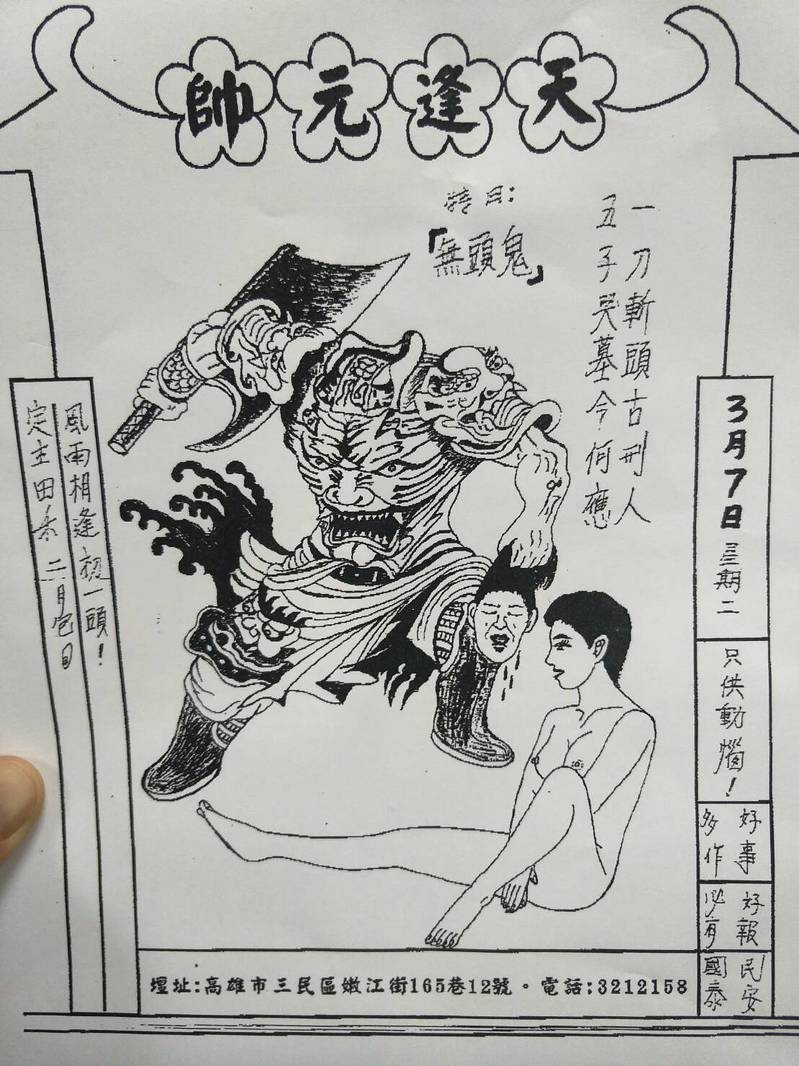 天逢元帥
特目:
「無頭鬼」
一刀斬頭古刑人
五子哭墓今何應
3月7日星期二
只供動腦!
好事
多作
好報
必有
民安
國泰
風雨相逢初一頭!
定主田 二月包日
壇址:高雄市三民區嫩江街165巷12號。電話:3212158